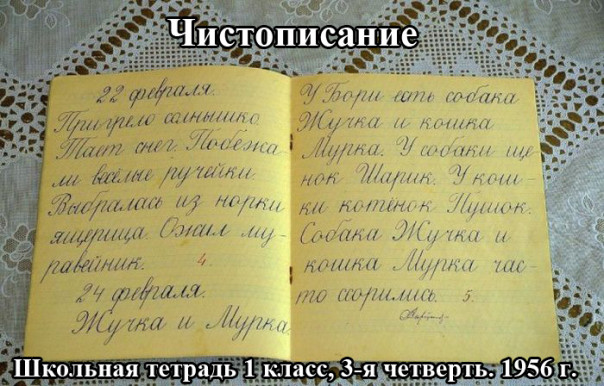 Чистописание
22 февраля.
Пригрело солнышко.
Тает снег. Побежа-
ли весёлые ручейки.
Выбралась из норки
ящерица. Ожил му-
равейник. 4.
24 февраля.
Жучка и Мурка.
У Бори есть собака
Жучка и кошка
Мурка. У собаки ще-
нок Шарик. У кош-
ки котёнок Пушок.
Собака Жучка и
кошка Мурка час-
то ссорились. 5.
Школьная тетрадь 1 класс, 3-я четверть. 1956 г.